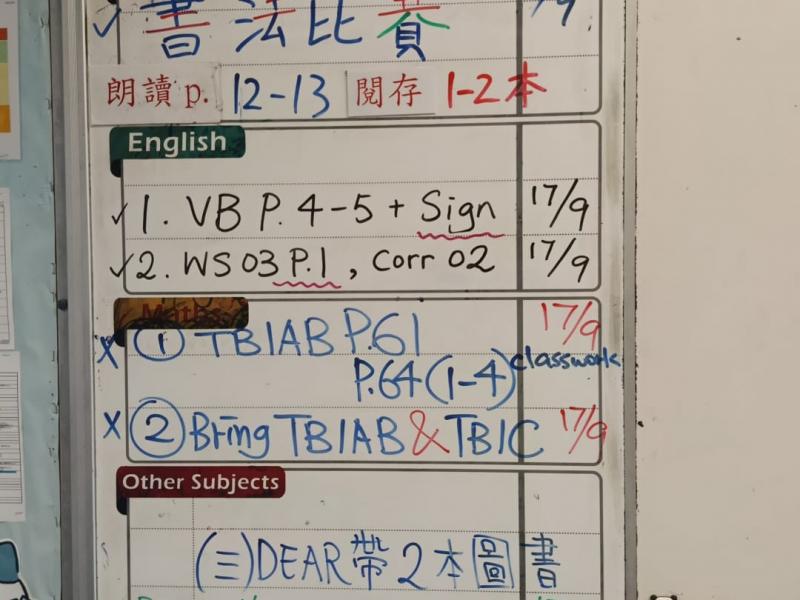 書法比賽 17/9
朗讀 p. 12-13 閱存 1-2本
English
✓ 1. VB P. 4-5 + Sign 17/9
✓ 2. WS 03 P.1, Corr 02 17/9
Maths
x ① TB1AB P.61 17/9
P.64(1-4) classwork
x ② Bring TB1AB & TB1C 17/9
Other Subjects
(三)DEAR帶2本圖書